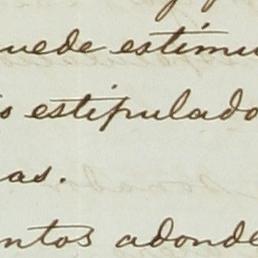 uede estimu
o estipulado
as.
ntos adonde